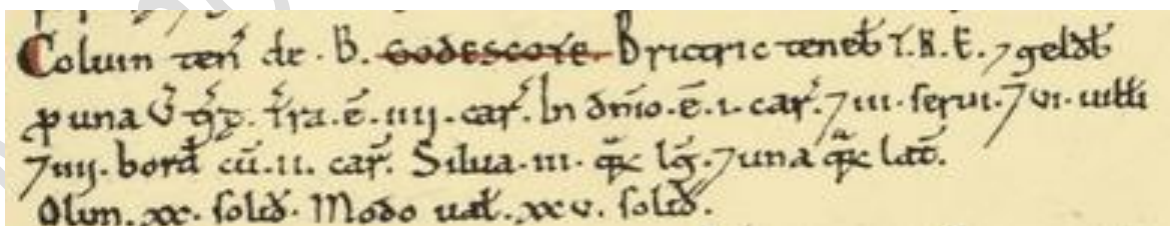 Coluin ten̄ de . B. GODESCOTE. Brictric teneb̄ T. R. E. ⁊ geld̄b
ꝓ una V̄ g̃ . T̃ra . ē . iiij . car̃. In dñio . ē . i . car̃. ⁊ iii . serui . ⁊ vi . uilli
⁊ iiij . bord̄ cū . ii . car̃. Silua . iii . q̃ꝝ lḡ. ⁊ una q̃ꝝ lat̄.
Olim . xx . solid̄. Modo ual̄ . xxv . solid̄.